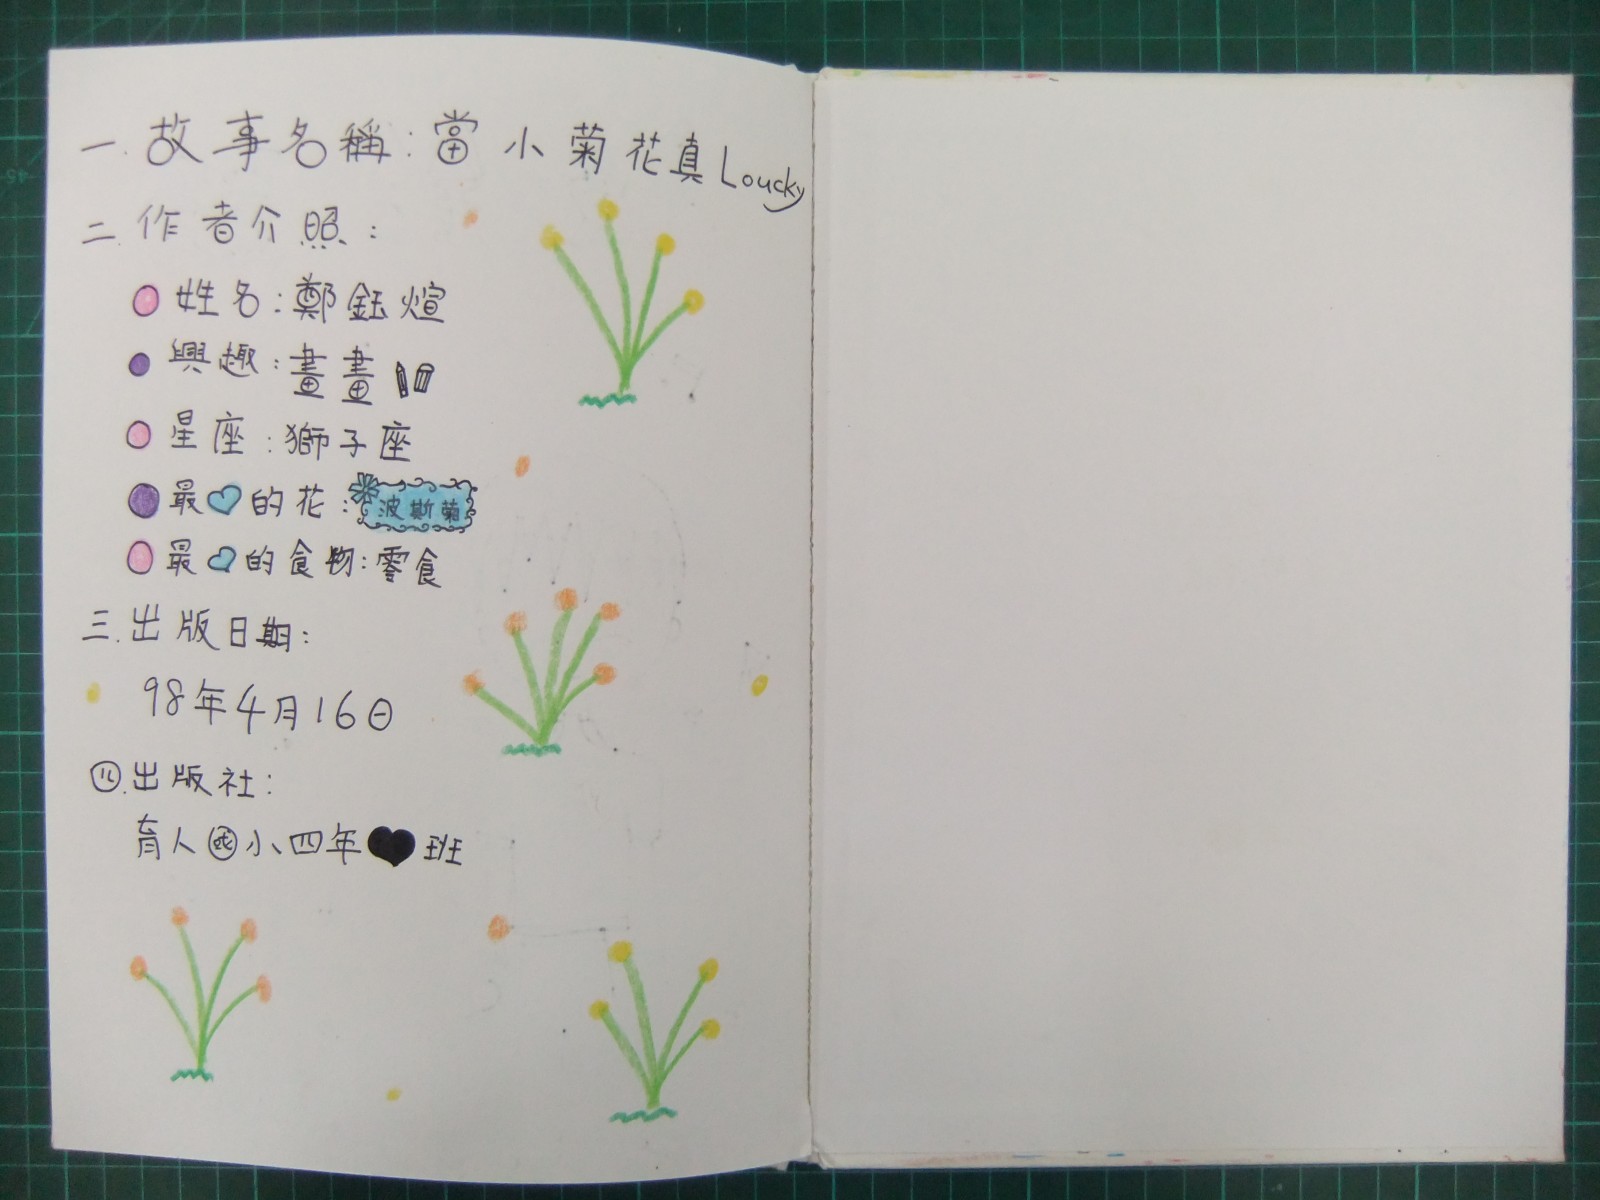 一.故事名稱:當小菊花真Loucky
二.作者介照:
姓名:鄭鈺煊
興趣:畫畫
星座:獅子座
最的花:波斯菊
最的食物:零食
三.出版日期:
98年4月16日
四.出版社:
育人國小四年班